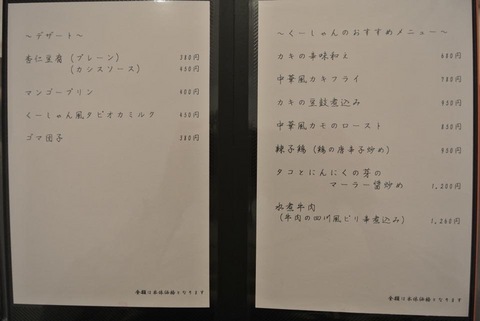 ～デザート～
杏仁豆腐（プレーン） 380円
（カシスソース） 430円
マンゴープリン 400円
くーしゃん風タピオカミルク 430円
ゴマ団子 380円
金額は本体価格となります
～くーしゃんのおすすめメニュー～
カキの辛味和え 680円
中華風カキフライ 780円
カキの豆鼓煮込み
中華風カモのロースト 850円
辣子鶏（鶏の唐辛子炒め） 900円
タコとにんにくの芽の
マーラー醤炒め 1,200円
水煮牛肉
（牛肉の四川風ピリ辛煮込み） 1,260円
金額は本体価格となります